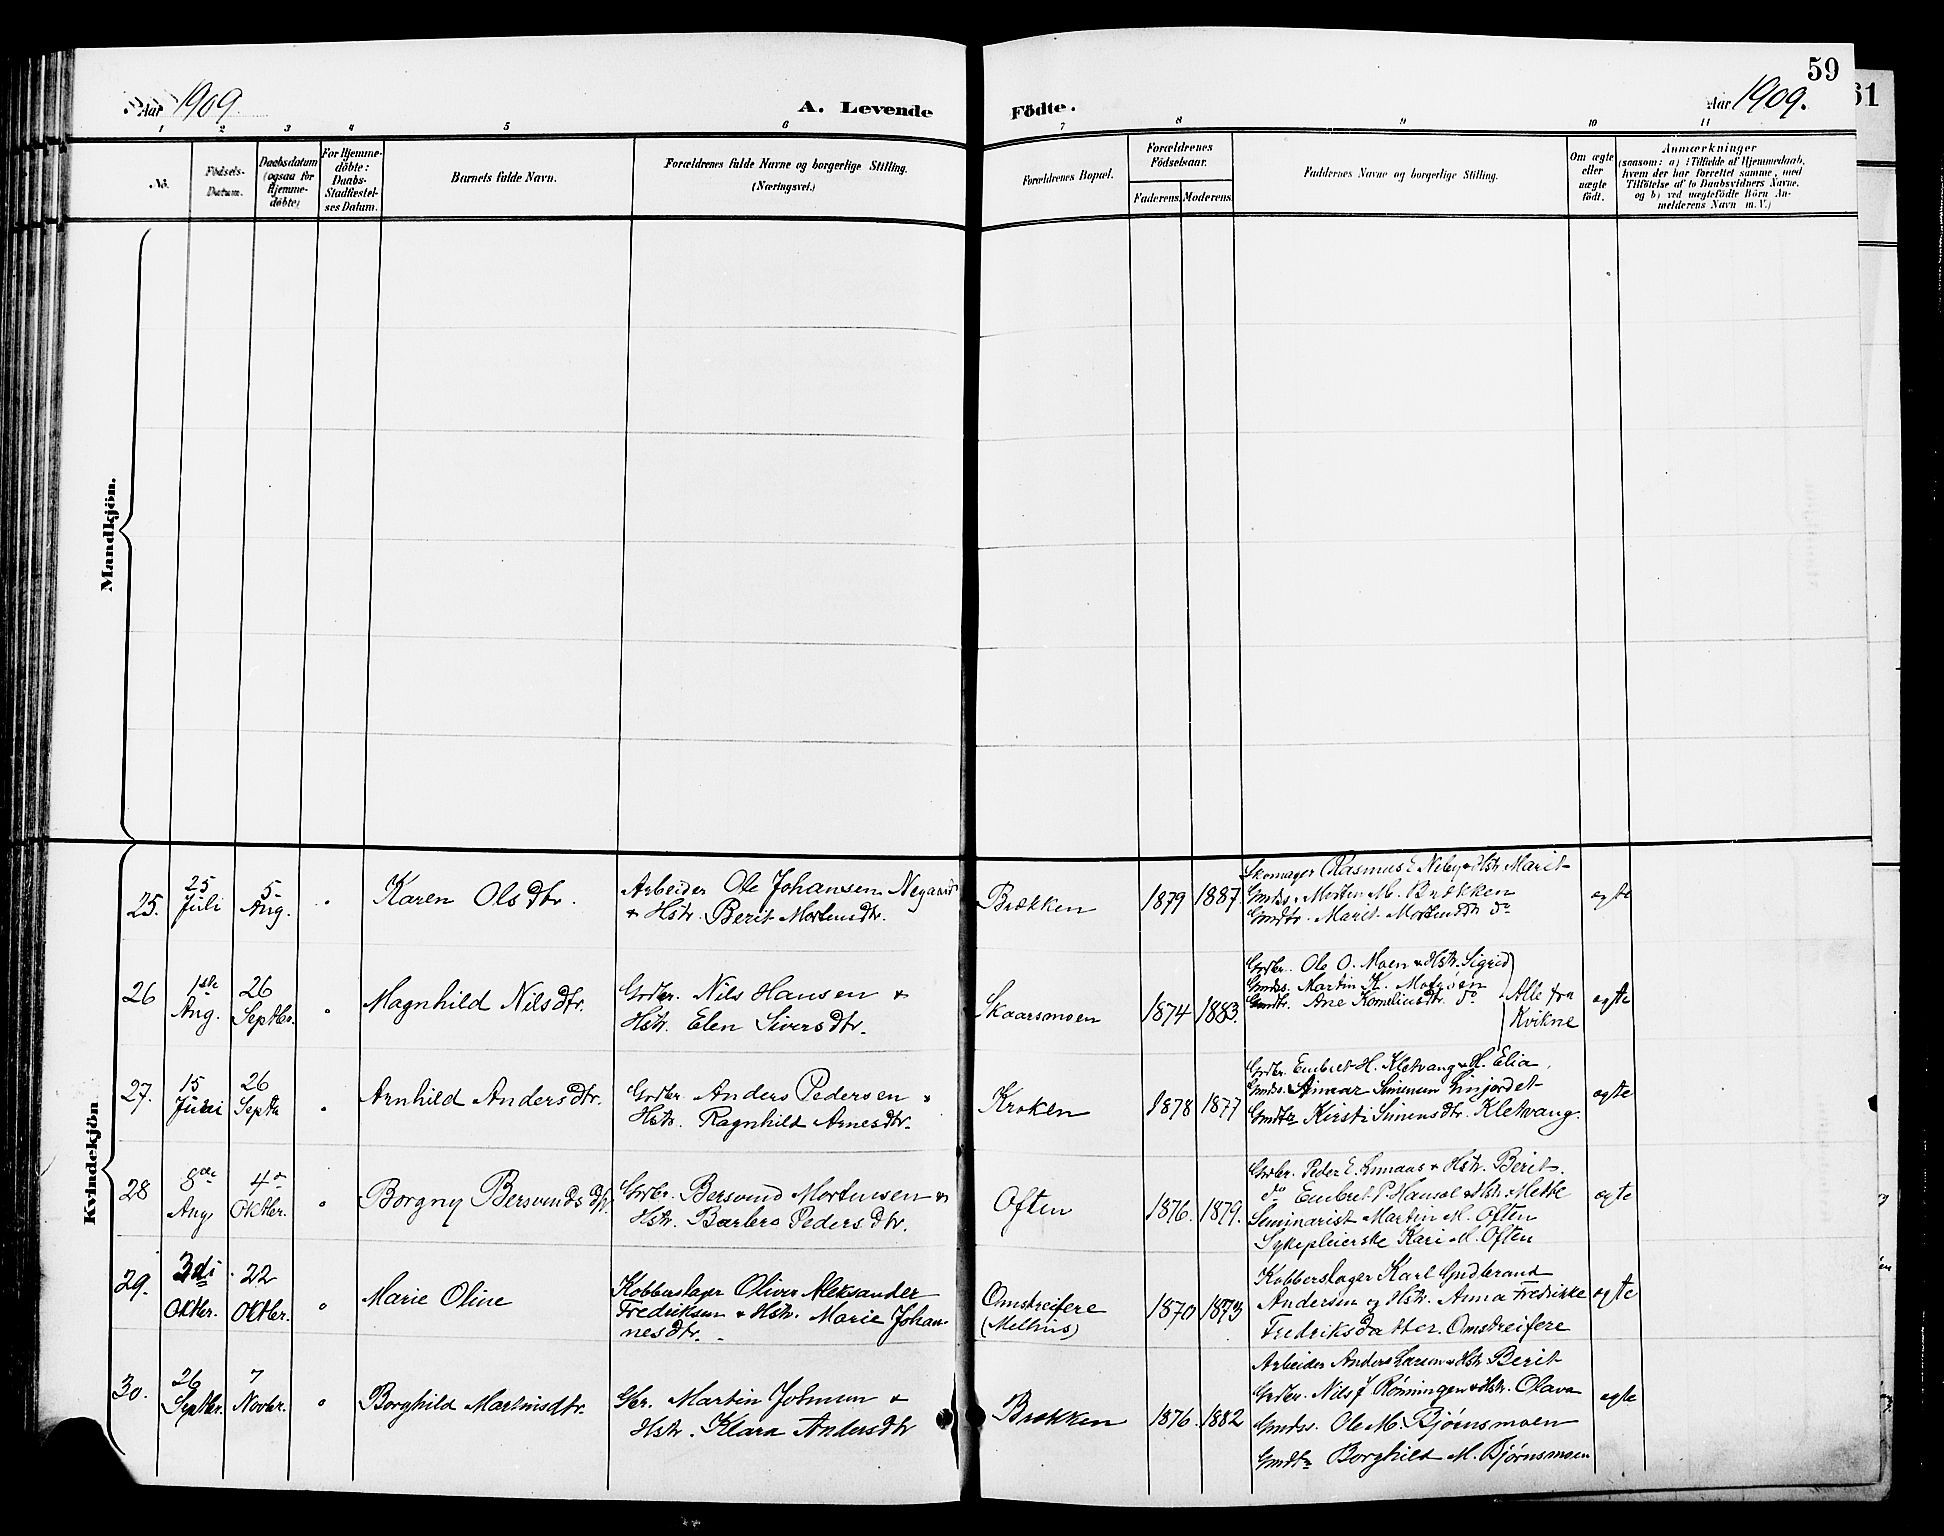 Aar 1909.
A. Levende
Födte.
Aar 1909.
59
61
1 2 3 4 5 6 7 8 9 10 11
No.
Födsels-
Datum.
Daabsdatum
(ogsaa for
Hjemme-
døbte)
For Hjemme-
döbte:
Daabs-
Stadfæstel-
ses Datum.
Barnets fulde Navn.
Forældrenes fulde Navne og borgerlige Stilling.
(Næringsvei.)
Forældrenes Bopæl.
Forældrenes
Födselsaar.
Faderens.
Moderens.
Faddernes Navne og borgerlige Stilling.
Om ægte
eller
uægte
födt.
Anmærkninger
(saasom: a) i Tilfælde af Hjemmedaab,
hvem der har forrettet samme, med
Tilföielse af to Daabsvidners Navne,
og b) ved uægtefödte Börn An-
melderens Navn m. V.)
Mandkjön.
Kvindekjön
25.
25
Juli
5
Aug.
Karen Olsdtr.
Arbeider Ole Johansen Negaard
& Hstr. Berit Mortensdtr.
Brækken
1879
1887.
Skomager Rasmus E Neby & Hstr Marit
Gmdss. Morten M. Brækken
Gmdtr. Marit Mortensdtr do
ægte
26
1ste
Aug.
26
Septbr.
Magnhild Nilsdtr.
Grdbr. Nils Hansen &
Hstr. Elen Siversdtr.
Skaarsmoen
1874
1883.
Grdbr. Ole O. Moen & Hstr. Sigrid
Gmdss. Martin K.
Gmdtr. Ane Korneliusdtr. do
Alle fra
Kvikne
ægte
27.
15
Juli
26
Septbr
Arnhild Andersdtr.
Grdbr. Anders Pedersen &
Hstr. Ragnhild Arnesdtr.
Kroken
1878
1877
Grdbr. Embret H. Kletvang & H. Elia
Gmdss. Simensen
Gmdtr Kirsti Simensdtr. Kletvang.
ægte
28
8de
Aug.
4de
Oktbr.
Borgny Bersvendsdtr.
Grdbr. Bersvend Mortensen &
Hstr. Barbro Pedersdtr.
Often
1876.
1879.
Grdbr. Peder E. & Hstr. Berit.
do Embret P. Hansæl & Hstr. Mette
Seminarist Martin M. Often
Sykepleierske Kari M. Often
ægte
29.
3di
Oktbr.
22
Oktbr.
Marie Oline
Kobberslager Oliver Aleksander
Fredriksen & Hstr. Marie Johan-
nesdtr.
Omstreifere
(Melhus)
1870
1873
Kobberslager Karl Gudbrand
Andersen og Hstr. Anna Fredrikke
Fredriksdatter. Omstreifere
ægte
30.
26
Septbr.
7
Novbr.
Borghild Martinsdtr.
Gbr. Martin Johnsen &
Hstr. Klara Andersdtr
Brækken
1876.
1882
Arbeider Anders Larsen & Hstr Berit
Grdbr. Nils J Rønningen & Hstr. Olava
Gmdss. Ole M. Bjørnsmoen
Gmdtr Borghild M. Bjørnsmoen
ægte